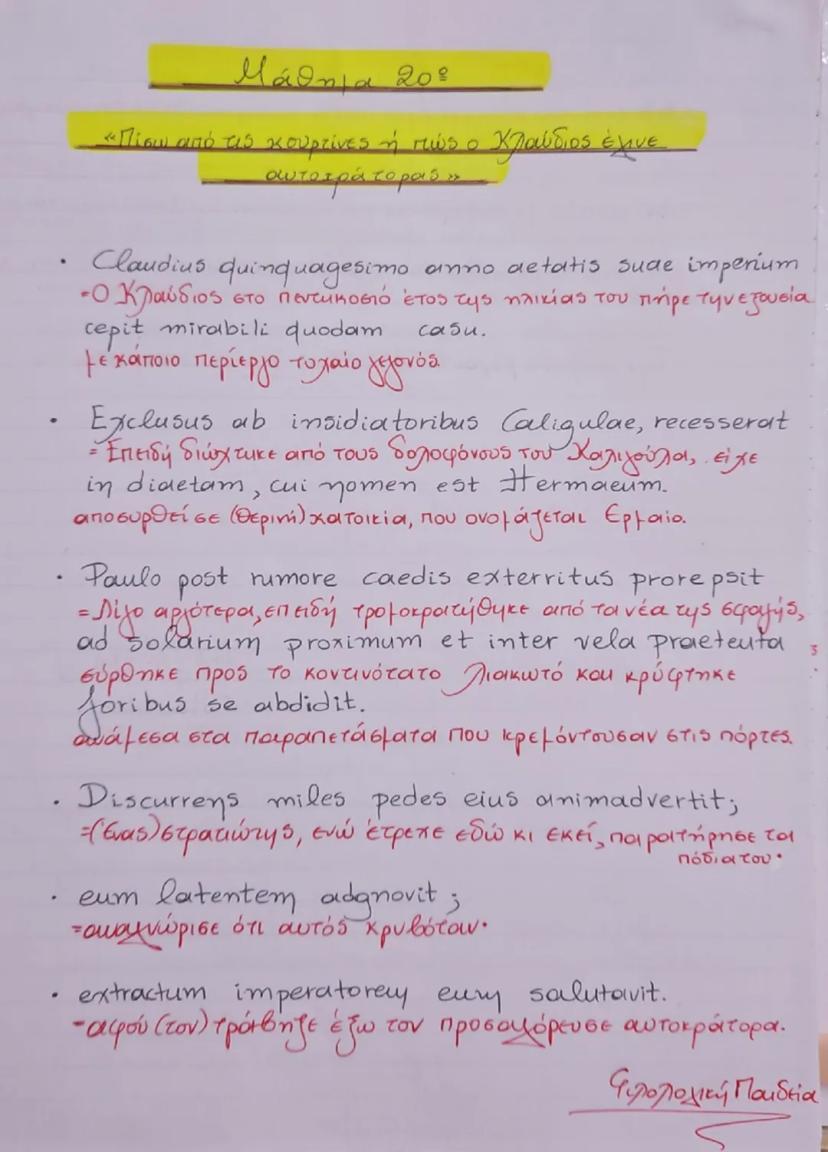 Μάθημα 20º
«Πίσω από τις κουρτίνες ή πώς ο Κλαύδιος έγινε
αυτοκράτορας»
• Claudius quinquagesimo anno aetatis suae imperium
=Ο Κλαύδιος στο πεντηκοστό έτος της ηλικίας του πήρε την εξουσία
cepit mirabili quodam casu.
με κάποιο περίεργο τυχαίο γεγονός.
• Exclusus ab insidiatoribus Caligulae, recesserat
= Επειδή διώχτηκε από τους δολοφόνους του Καλιγούλα, είχε
in diaetam, cui nomen est Hermaeum.
αποσυρθεί σε (θερινή) κατοικία, που ονομάζεται Ερμαίο.
• Paulo post rumore caedis exterritus prorepsit
= Λίγο αργότερα, επειδή τρομοκρατήθηκε από τα νέα της σφαγής,
ad solarium proximum et inter vela praetenta
σύρθηκε προς το κοντινότατο λιακωτό και κρύφτηκε
foribus se abdidit.
ανάμεσα στα παραπετάσματα που κρεμόντουσαν στις πόρτες.
• Discurrens miles pedes eius animadvertit;
=(Ένας) στρατιώτης, ενώ έτρεχε εδώ κι εκεί, παρατήρησε τα
πόδια του·
• eum latentem adgnovit;
=αναγνώρισε ότι αυτός κρυβόταν·
• extractum imperatorem eum salutavit.
=αφού (τον) τράβηξε έξω τον προσαγόρευσε αυτοκράτορα.
Φιλολογική Παιδεία